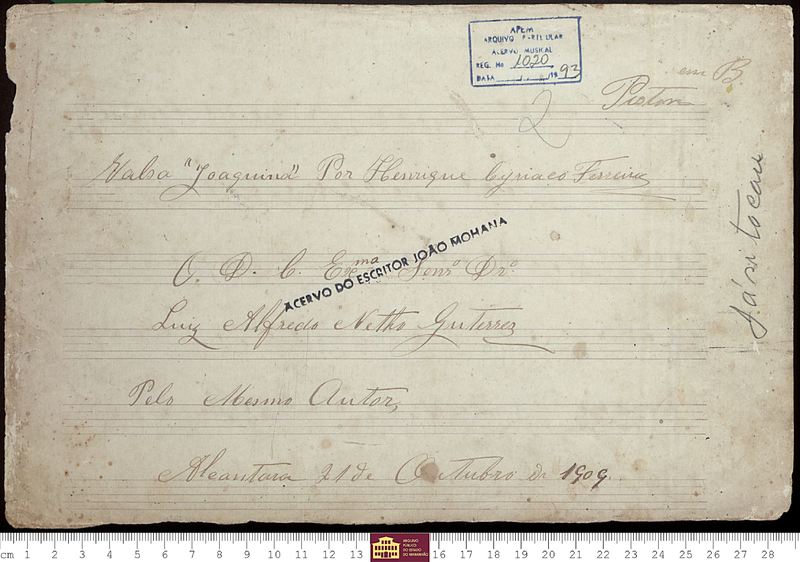 APEM
ARQUIVO PARTICULAR
ACERVO MUSICAL
REG. No 1020
DATA 1993
em B
Piston
2
Valsa "Joaquina" Por Henrique Cyriaco Ferreira
O. D. C. Exma Senr. Dr.
ACERVO DO ESCRITOR JOÃO MOHANA
Luiz Alfredo Netto Guterrez
Pelo Mesmo Autor,
Alcantara 21 de Outubro de 1909.
cm 1 2 3 4 5 6 7 8 9 10 11 12 13 16 17 18 19 20 21 22 23 24 25 26 27 28
ARQUIVO
PÚBLICO
DO ESTADO
DO MARANHÃO